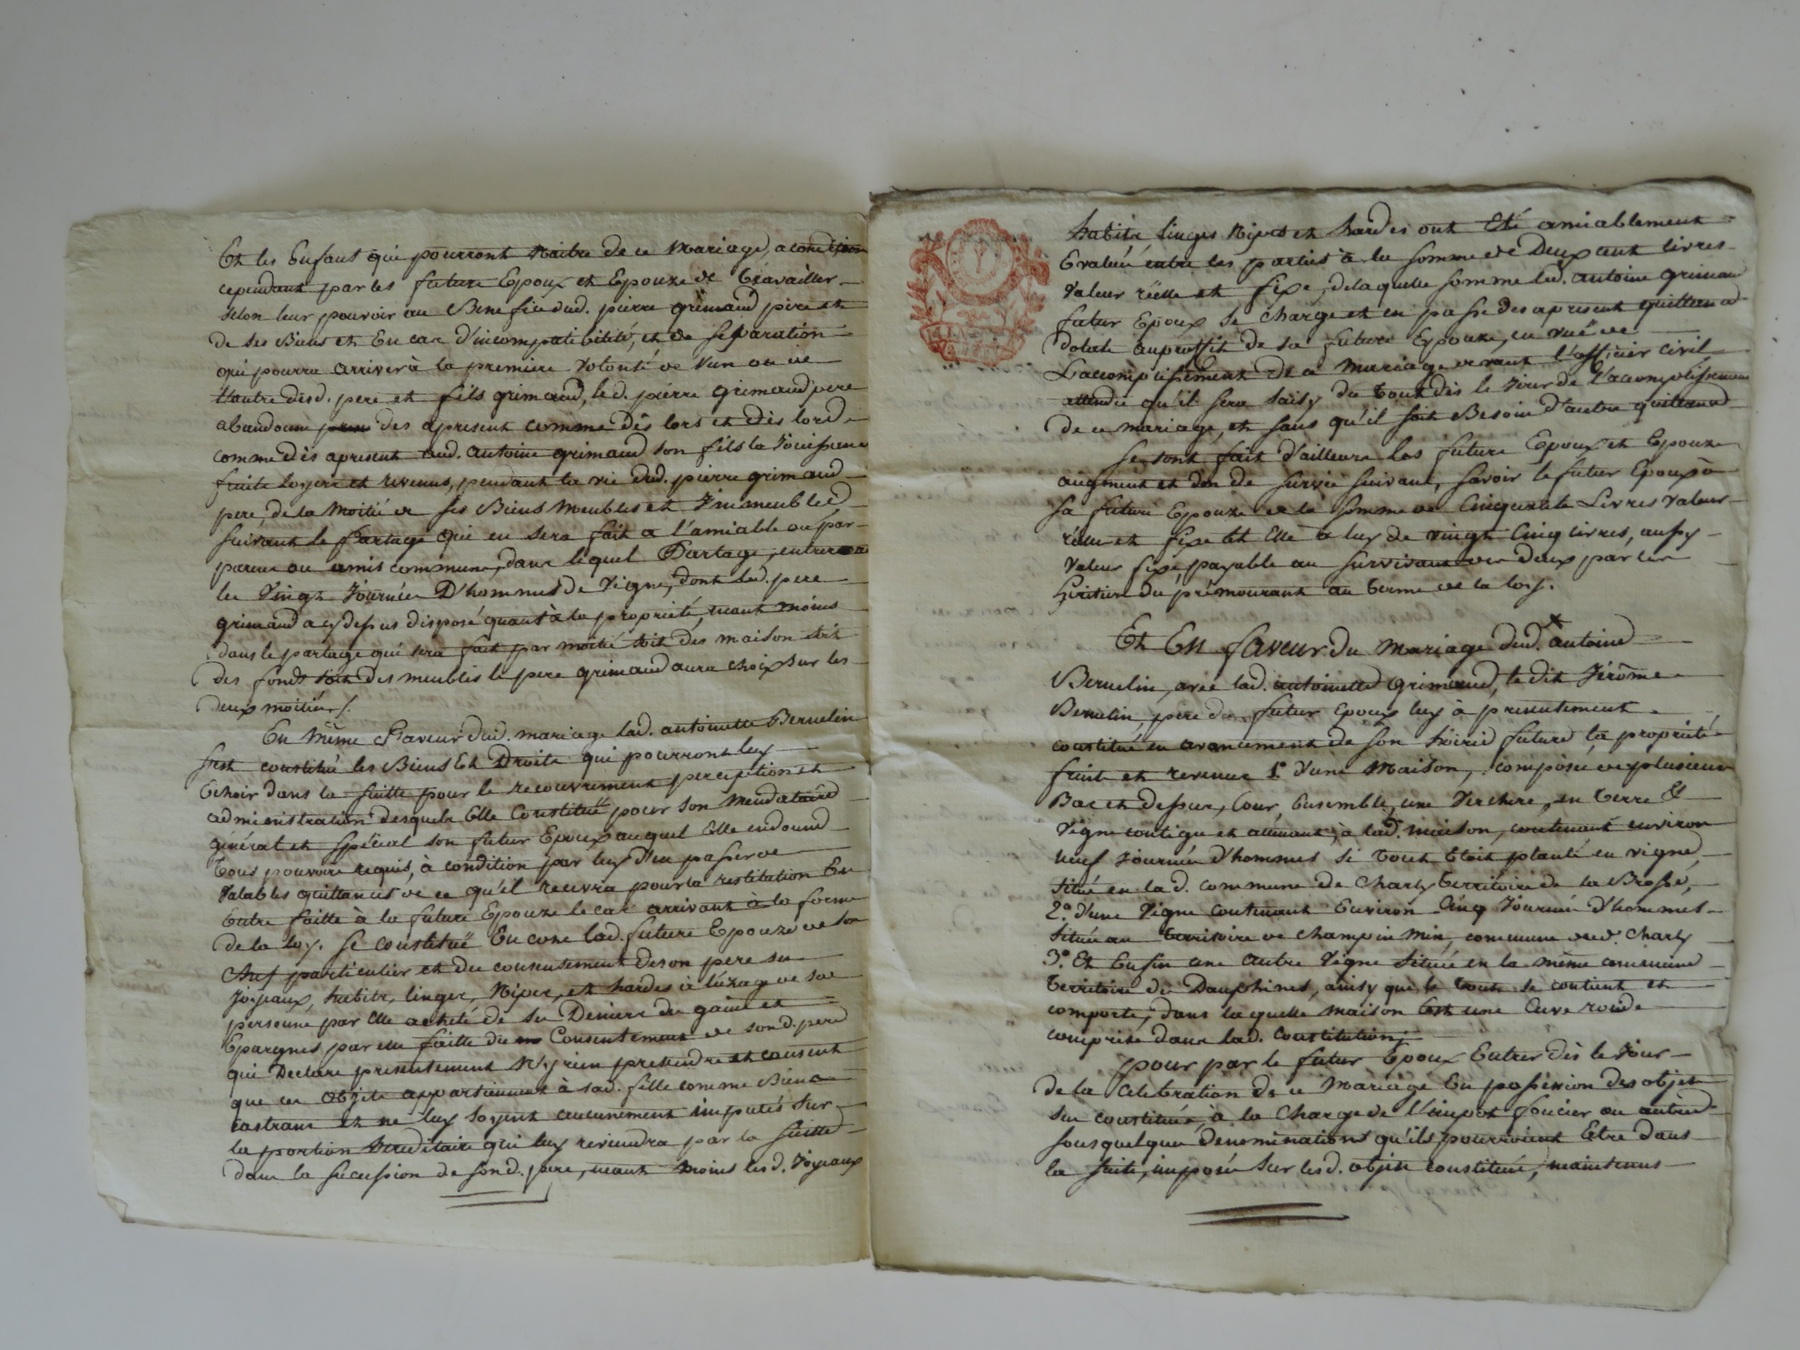 Et les Enfant qui pourront Naitre de ce Mariage, a condition
cependant par les future Epoux et Epouze de Travailler
selon leur pouvoir au Benefice dud. pierre grimaud pere et
de ses Biens et En cas d'incompatibilité, et de separation
qui pourra arriver à la premiere volonté de l'un ou de
l'autre desd. pere et fils grimaud, led. pierre grimaud pere
abandonne des apresent comme dès lors et dès lors
comme dès apresent aud. antoine grimaud son fils la Jouissance
fruits loyers et revenus, pendant la vie dud. pierre grimaud
pere, de la Moitié de ses Biens Meubles et Immeubles
suivant le Partage qui en sera fait a l'amiable ou par
parens ou amis communs, dans lequel Partage, entrera
les Vingt Journées D'hommes de Vigne, dont led. pere
grimaud a cy dessus disposé quant à la propriété, neant moins
dans le partage qui sera fait par moitié soit des maison soit
des fonds soit des meubles le pere grimaud aura choix sur les
deux moitiés /.
En Même Faveur dud. mariage lad. antoinette Bernelin
s'est constitué les Biens Et Droits qui pourront luy
Echoir dans la suitte pour le recouvrement perception et
administration desquels Elle Constitue pour son Mendataire
général et spécial son futur Epoux auquel Elle en donne
tous pouvoirs requis, à condition par luy d'en passer de
valables quittances de ce qu'il recevra pour la restitution En
Estre faitte à la future Epouze le cas arrivant à la forme
de la Loy. Se constitue Encore lad. future Epouze de son
Chef particulier et du consentement de son pere ses
Joyeaux, habits, linges, Nipes, et hardes à l'uzage de sa
personne par Elle acheté de ses Deniers de gain et
Epargnes par elle faitte du Consentement de sond. pere
qui Declare presentement N'y rien pretendre et consent
que ces objets appartiennent à sad. fille comme Biens
castrans et ne luy soyent aucunement imputés sur
la portion Hereditaire qui luy reviendra par la suitte
dans la succession de sond. pere, neant moins lesd. Joyeaux
habits linges Nipes et hardes ont Eté amiablement
Evalués entre les parties à la somme de Deux cent livres
Valeur réelle et fixe, de laquelle somme led. antoine grimaud
futur Epoux se charge et en passe des apresent quittance
dotale auproffit de sa future Epouze, en vuë de
L'accomplissement de ce Mariage devant l'officier civil
attendu qu'il sera saisy du tout dès le Jour de l'accomplissement
de ce mariage, et sans qu'il soit Besoin d'autre quittance
se sont fait d'ailleurs les future Epoux et Epouze
augment et don de survie suivant, savoir le futur Epoux à
sa future Epouze de la somme de Cinquante Livres valeur
réelle et fixe Et Elle à luy de vingt Cinq livres, aussy
valeur fixe payable au survivant des deux par les
héritiers du prémourant au terme de la loy.
Et En faveur du Mariage dud. antoine
Bernelin, avec lad. antoinette Grimaud, le dit Jerôme
Bernelin, pere du futur Epoux luy à presentement
constitué en avancement de son hoirie future la propriété
fruits et revenus 1.º d'une Maison, composée de plusieurs
Bas et dessus, Cour, Ensemble, une Verchere, en terre &
Vigne contigue et attenant, à lad. maison, contenant environ
neuf Journées d'hommes si tout Etoit planté en vigne,
située en lad. commune de Charly territoire de la Brosse,
2.º d'une Vigne contenant Environ Cinq Journées d'hommes
située au territoire de Champ in Min, commune dud. Charly
3.º Et Enfin une autre Vigne située en la même commune
territoire du Dauphines, ainsy que le tout se contient et
comporte, dans laquelle maison Est une Cuve ronde
comprise dans lad. constitution
pour par le futur Epoux Entrer dès le Jour
de la Celebration de ce Mariage En possession des objets
sus constitués, à la Charge de l'impot foncier ou autres
sous quelques denominations qu'ils pourroient Etre dans
la suite, imposés sur lesd. objets constitués, maintenus